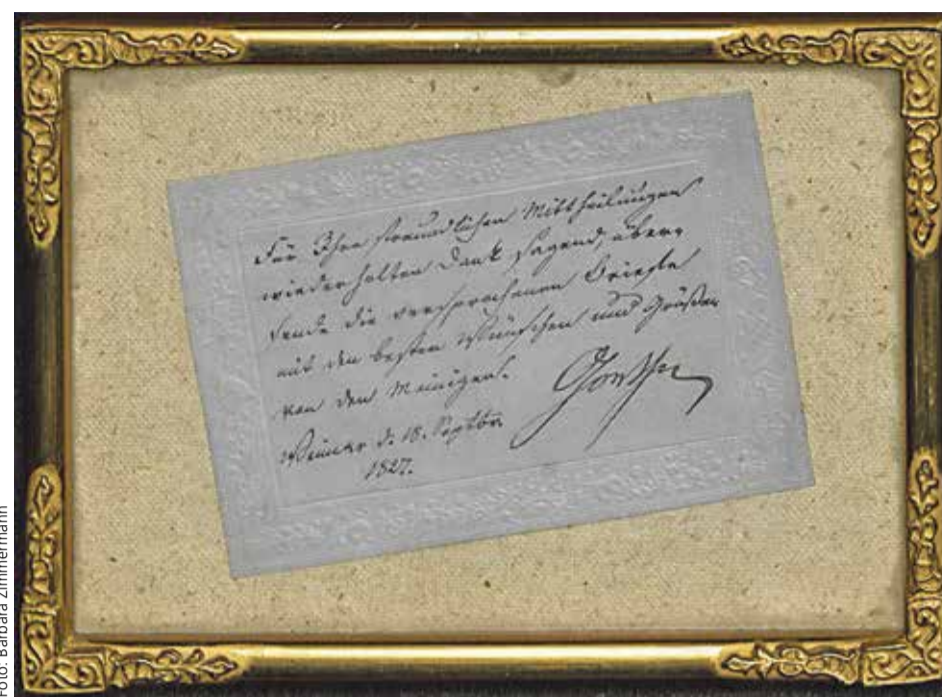 Für Ihre freundlichen Mittheilungen
wiederholten Dank sagend, über,
sende die versprochenen
mit den besten Wünschen und Grüßen
von den Meinigen.
Goethe
Weimar d. 18. Septbr.
1827.
Foto: Barbara Zimmermann